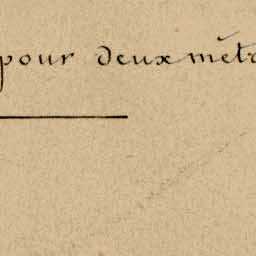 pour deux métr